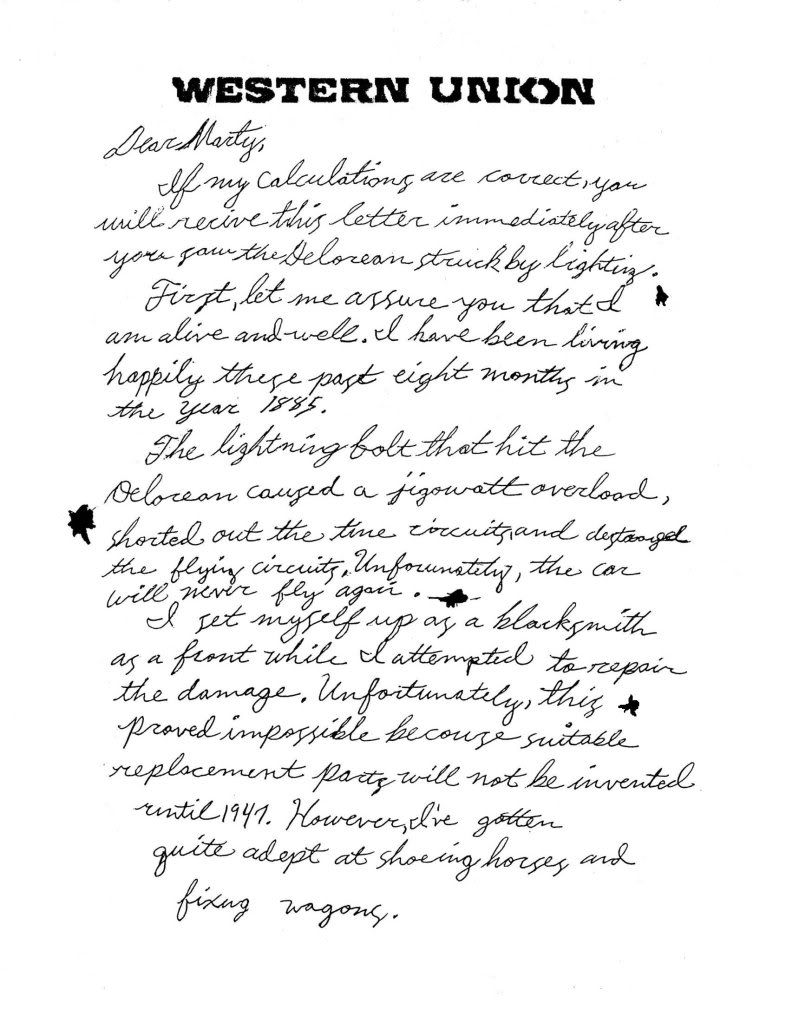 WESTERN UNION
Dear Marty,
If my calculations are correct, you
will recive this letter immediately after
you saw the Delorean struck by lighting.
First, let me assure you that I
am alive and well. I have been living
happily these past eight months in
the year 1885.
The lightning bolt that hit the
Delorean caused a jigowatt overload,
shorted out the time circuits, and destroyed
the flying circuits. Unforunately, the car
will never fly again.
I set myself up as a blacksmith
as a front while I attempted to repair
the damage. Unfortunately, this
proved impossible becouse suitable
replacement parts will not be invented
until 1947. However, I've gotten
quite adept at shoeing horses and
fixing wagons.